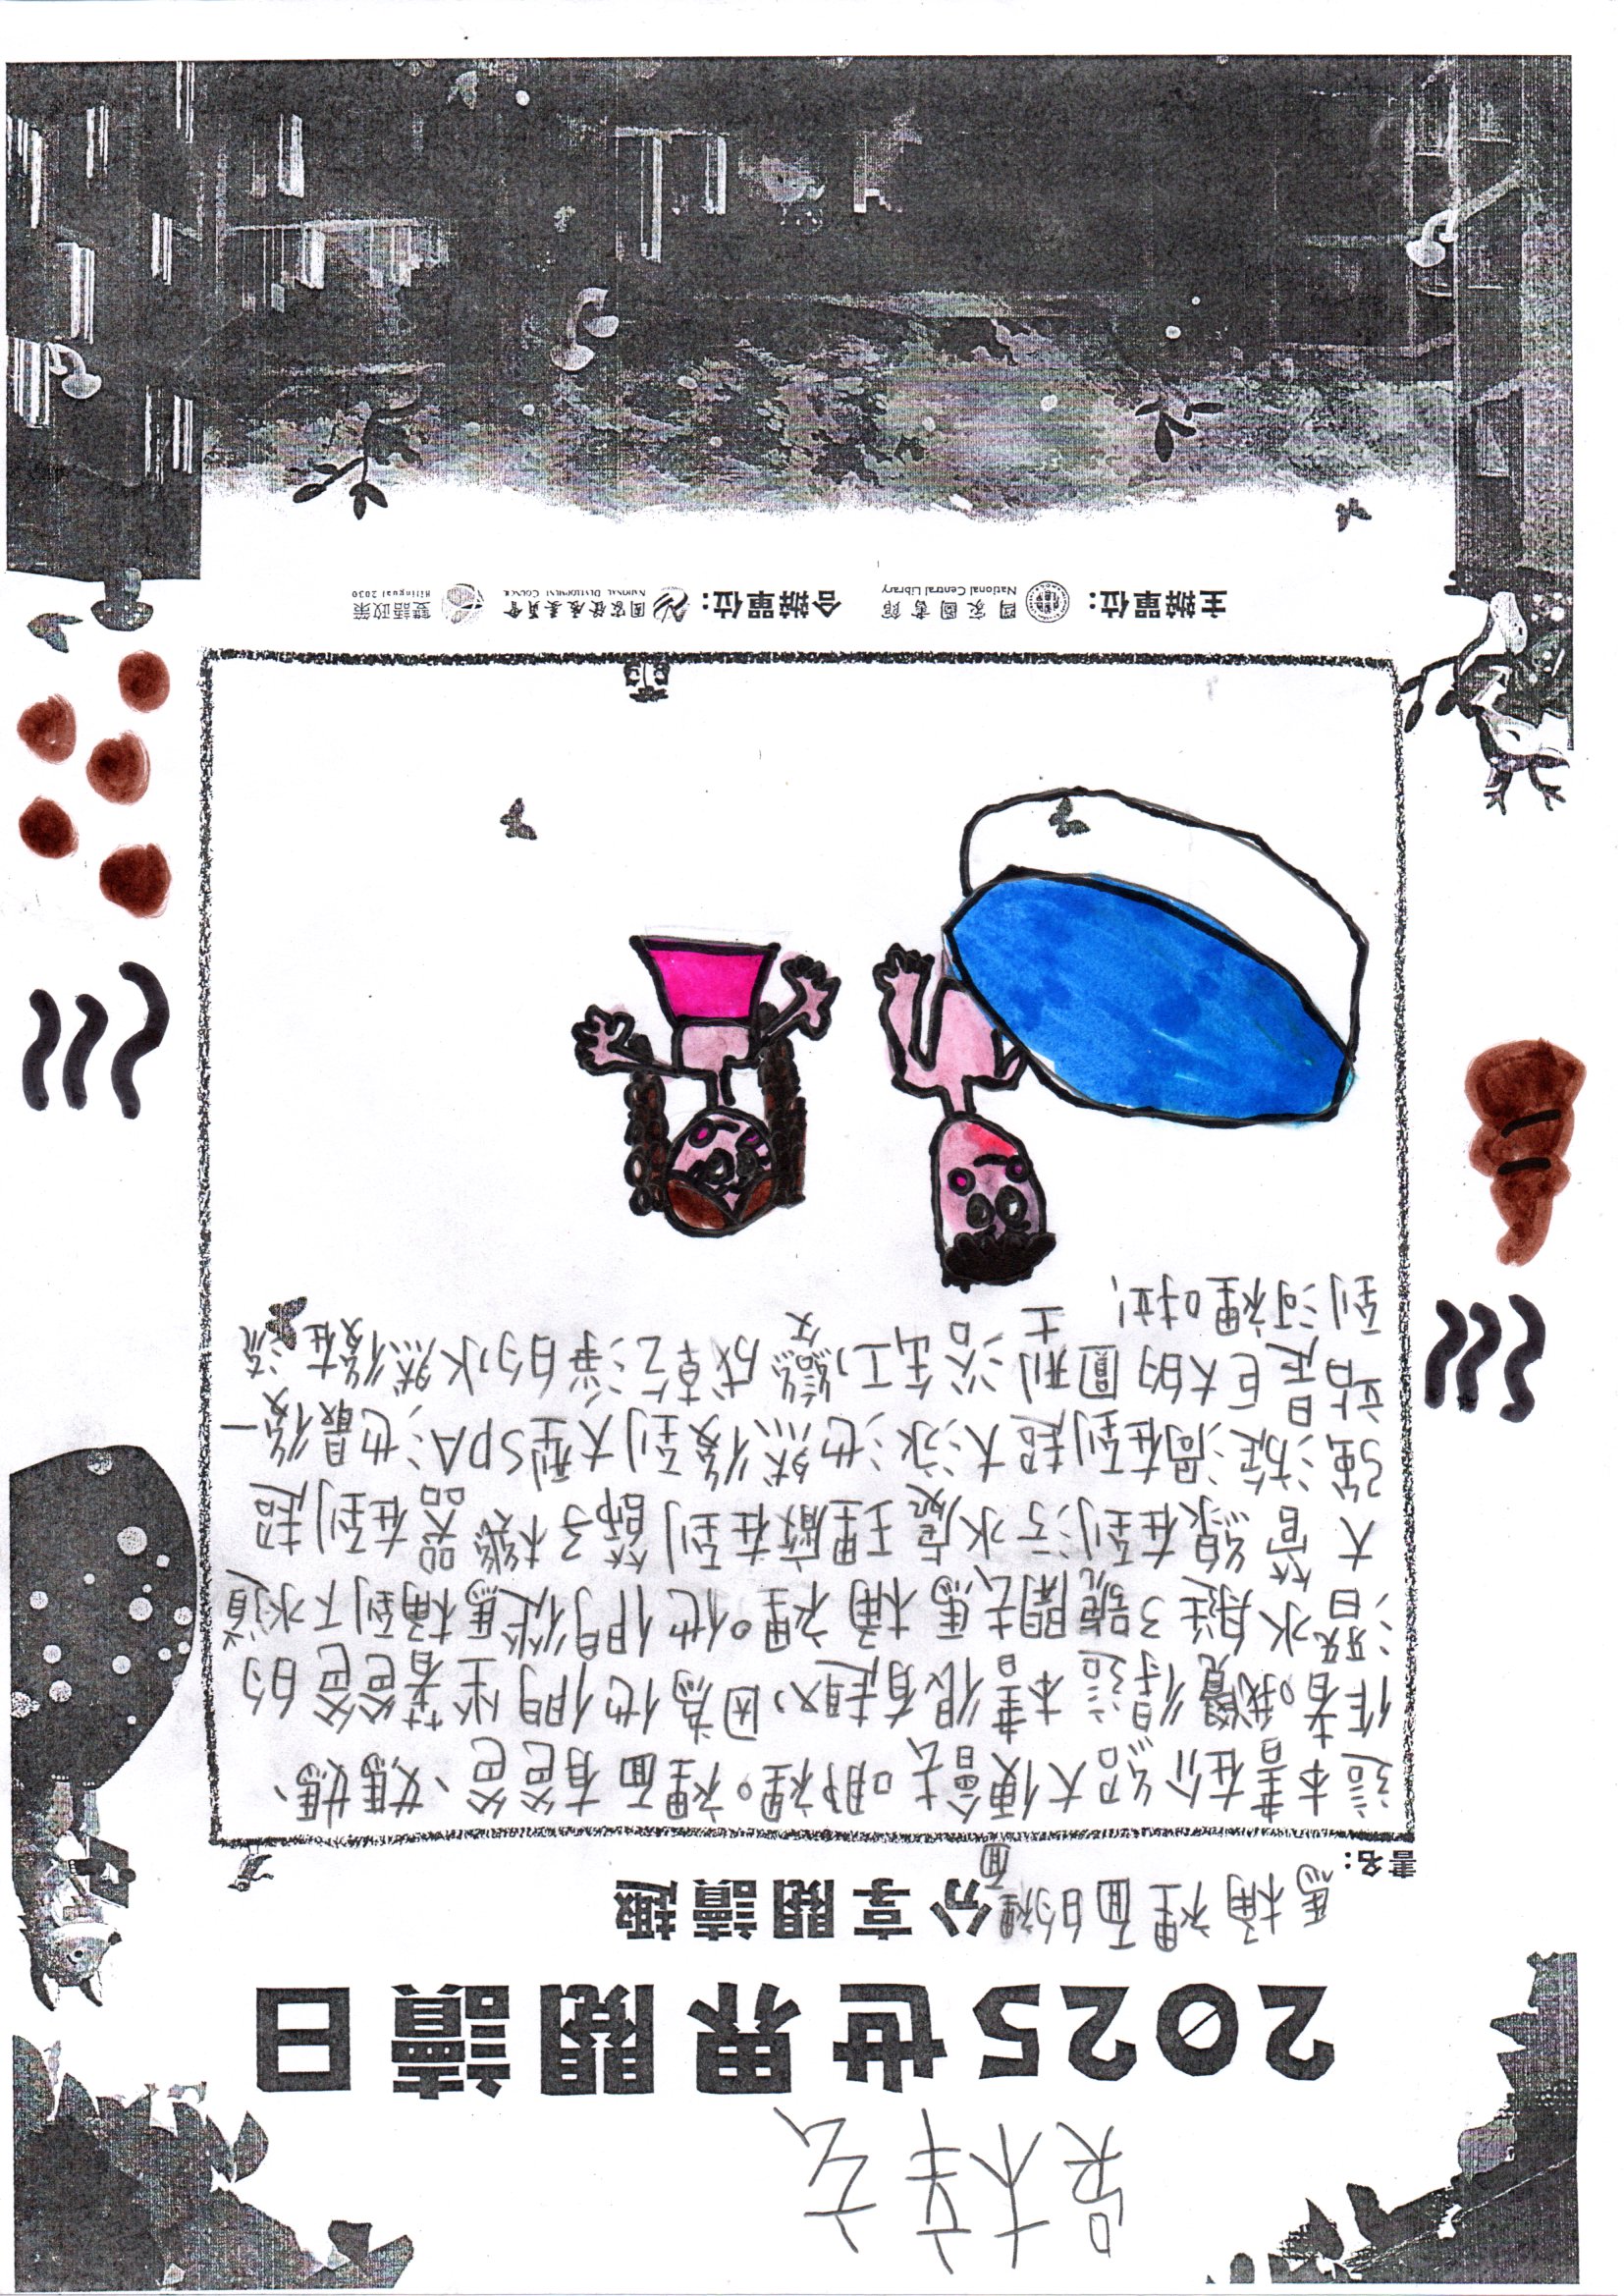 吳梓玄
2025世界閱讀日
分享閱讀趣
書名：馬桶裡面的裡面
這本書在介紹大便會去哪裡。裡面有爸爸、媽媽、
作者。我覺得這本書很有趣，因為他們坐著爸爸的
潛水艇3號開去馬桶裡。他們從馬桶到下水道
大管線在到污水處理廠在到篩子機器在到超
強漩渦在到超大泳池然後到大型SPA池最後一
站是巨大的圓 變成乾淨的水然後在流
到河裡啦！
主辦單位：國家圖書館 National Central Library 合辦單位：國家發展委員會 NATIONAL DEVELOPMENT COUNCIL 雙語政策 Bilingual 2030